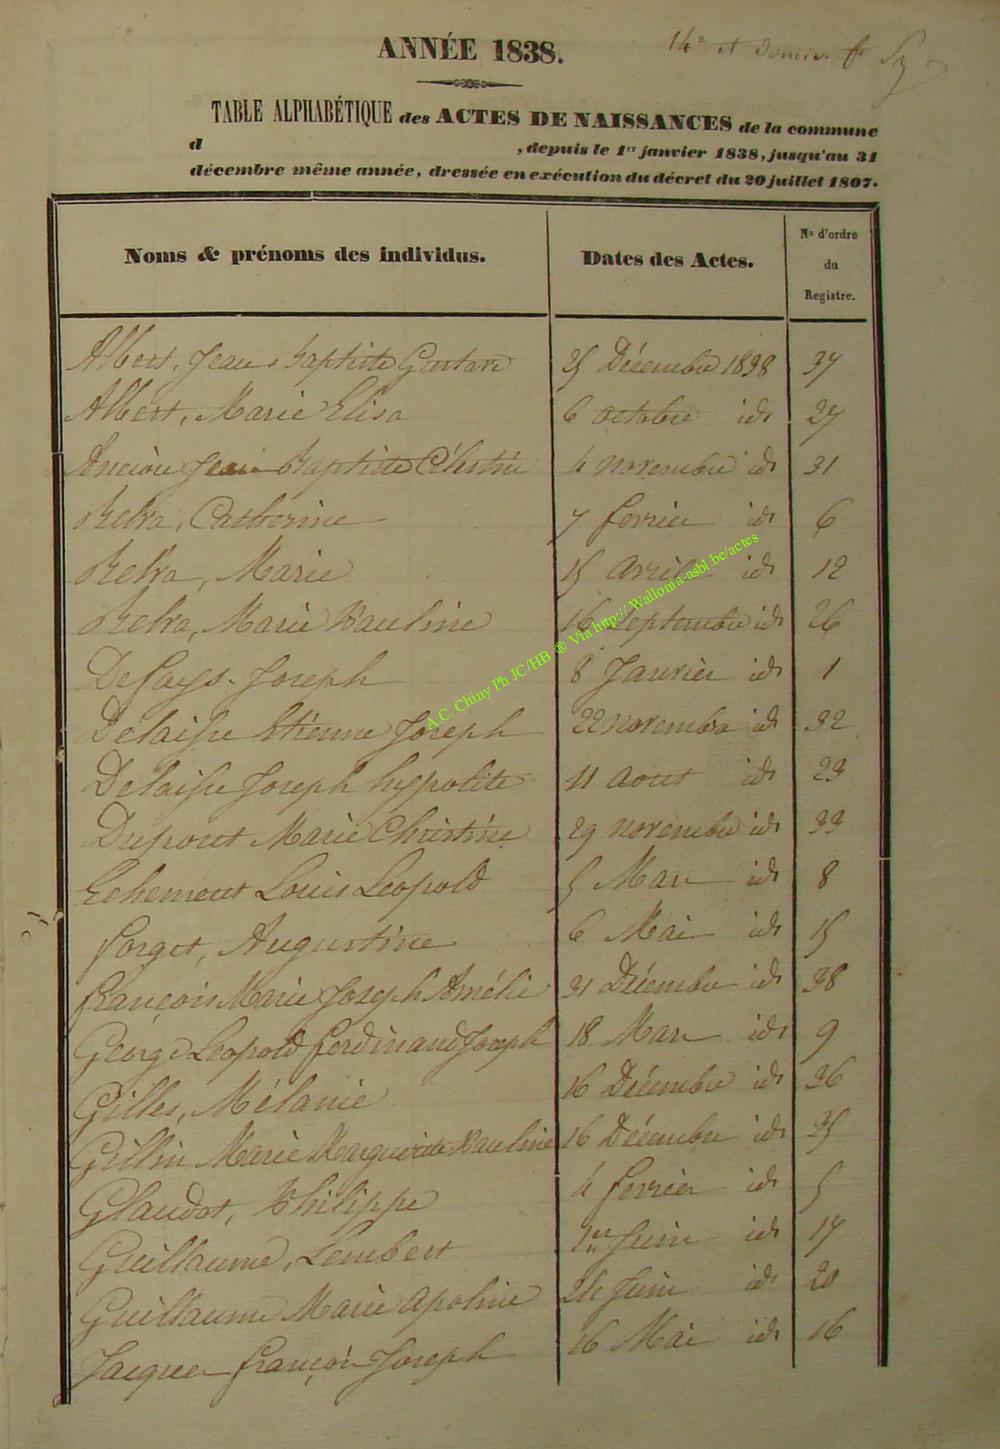 14e et dernier f
ANNÉE 1838.
TABLE ALPHABÉTIQUE des ACTES DE NAISSANCES de la commune
d , depuis le 1er janvier 1838, jusqu'au 31
décembre même année, dressée en exécution du décret du 20 juillet 1807.
Noms & prénoms des individus. Dates des Actes. No d'ordre du Registre.
Albert, Jean Baptiste Gustave 25 Décembre 1838 37
Albert, Marie Elisa 6 octobre id. 27
Ancion Jean Baptiste Célestin 4 novembre id. 31
Belva, Catherine 7 fevrier id. 6
Belva, Marie 15 Avril id. 12
Belva, Marie Pauline 16 Septembre id. 26
Defays. Joseph 8 Janvier id. 1
Delaisse Etienne Joseph 22 novembre id. 32
Delaisse Joseph hyppolite 11 Aout id. 23
Dupont Marie Christine 29 novembre id. 33
Echement Louis Leopold 5 Mars id. 8
forget, Augustine 6 Mai id. 15
françois Marie Joseph Amélie 31 Décembre id. 38
George Leopold ferdinand Joseph 18 Mars id. 9
Gilles, Mélanie 16 Décembre id. 36
Gillin Marie Marguerite Pauline 16 Décembre id. 35
Glaudot, Philippe 4 fevrier id. 5
Guillaume, Lembert 1er Juin id. 17
Guillaume Marie apoline 24 Juin id. 20
Jacques françois Joseph 16 Mai id. 16
A.C. Chiny Ph JC/HB ® Via http:// Wallonia-asbl.be/actes